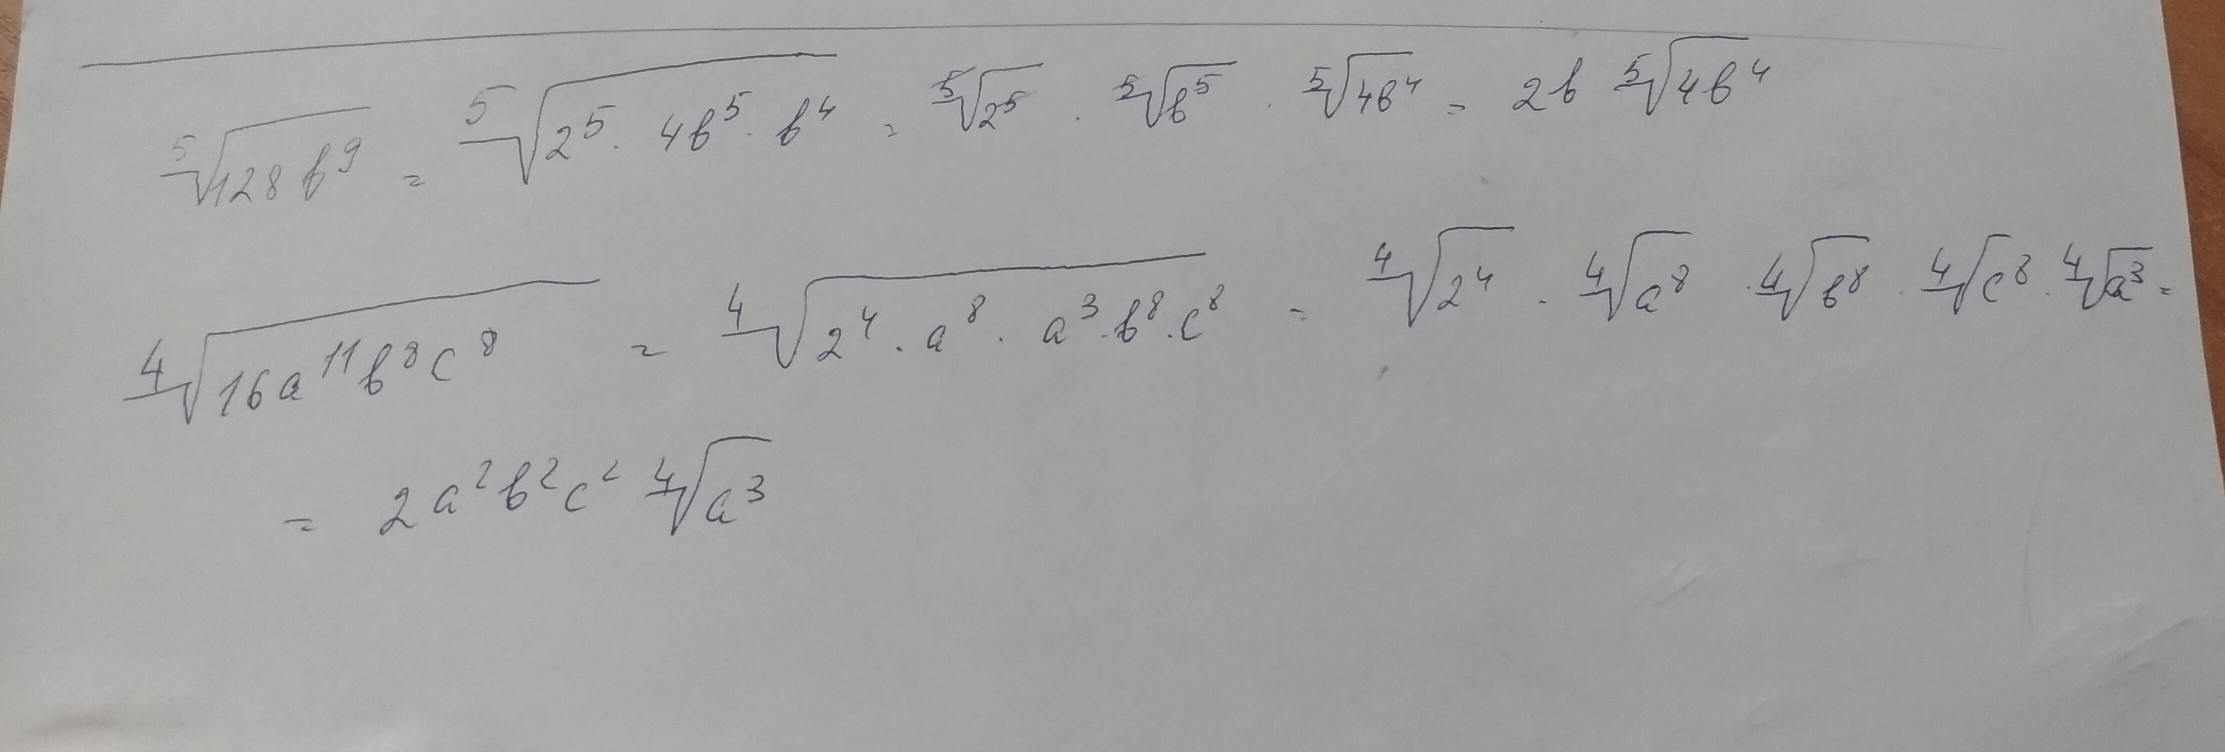 ⁵√(128b⁹) = ⁵√(2⁵ · 4b⁵ · b⁴) = ⁵√(2⁵) · ⁵√(b⁵) · ⁵√(4b⁴) = 2b ⁵√(4b⁴)
⁴√(16a¹¹b⁸c⁸) = ⁴√(2⁴ · a⁸ · a³ · b⁸ · c⁸) = ⁴√(2⁴) · ⁴√(a⁸) · ⁴√(b⁸) · ⁴√(c⁸) · ⁴√(a³) =
= 2a²b²c² ⁴√(a³)